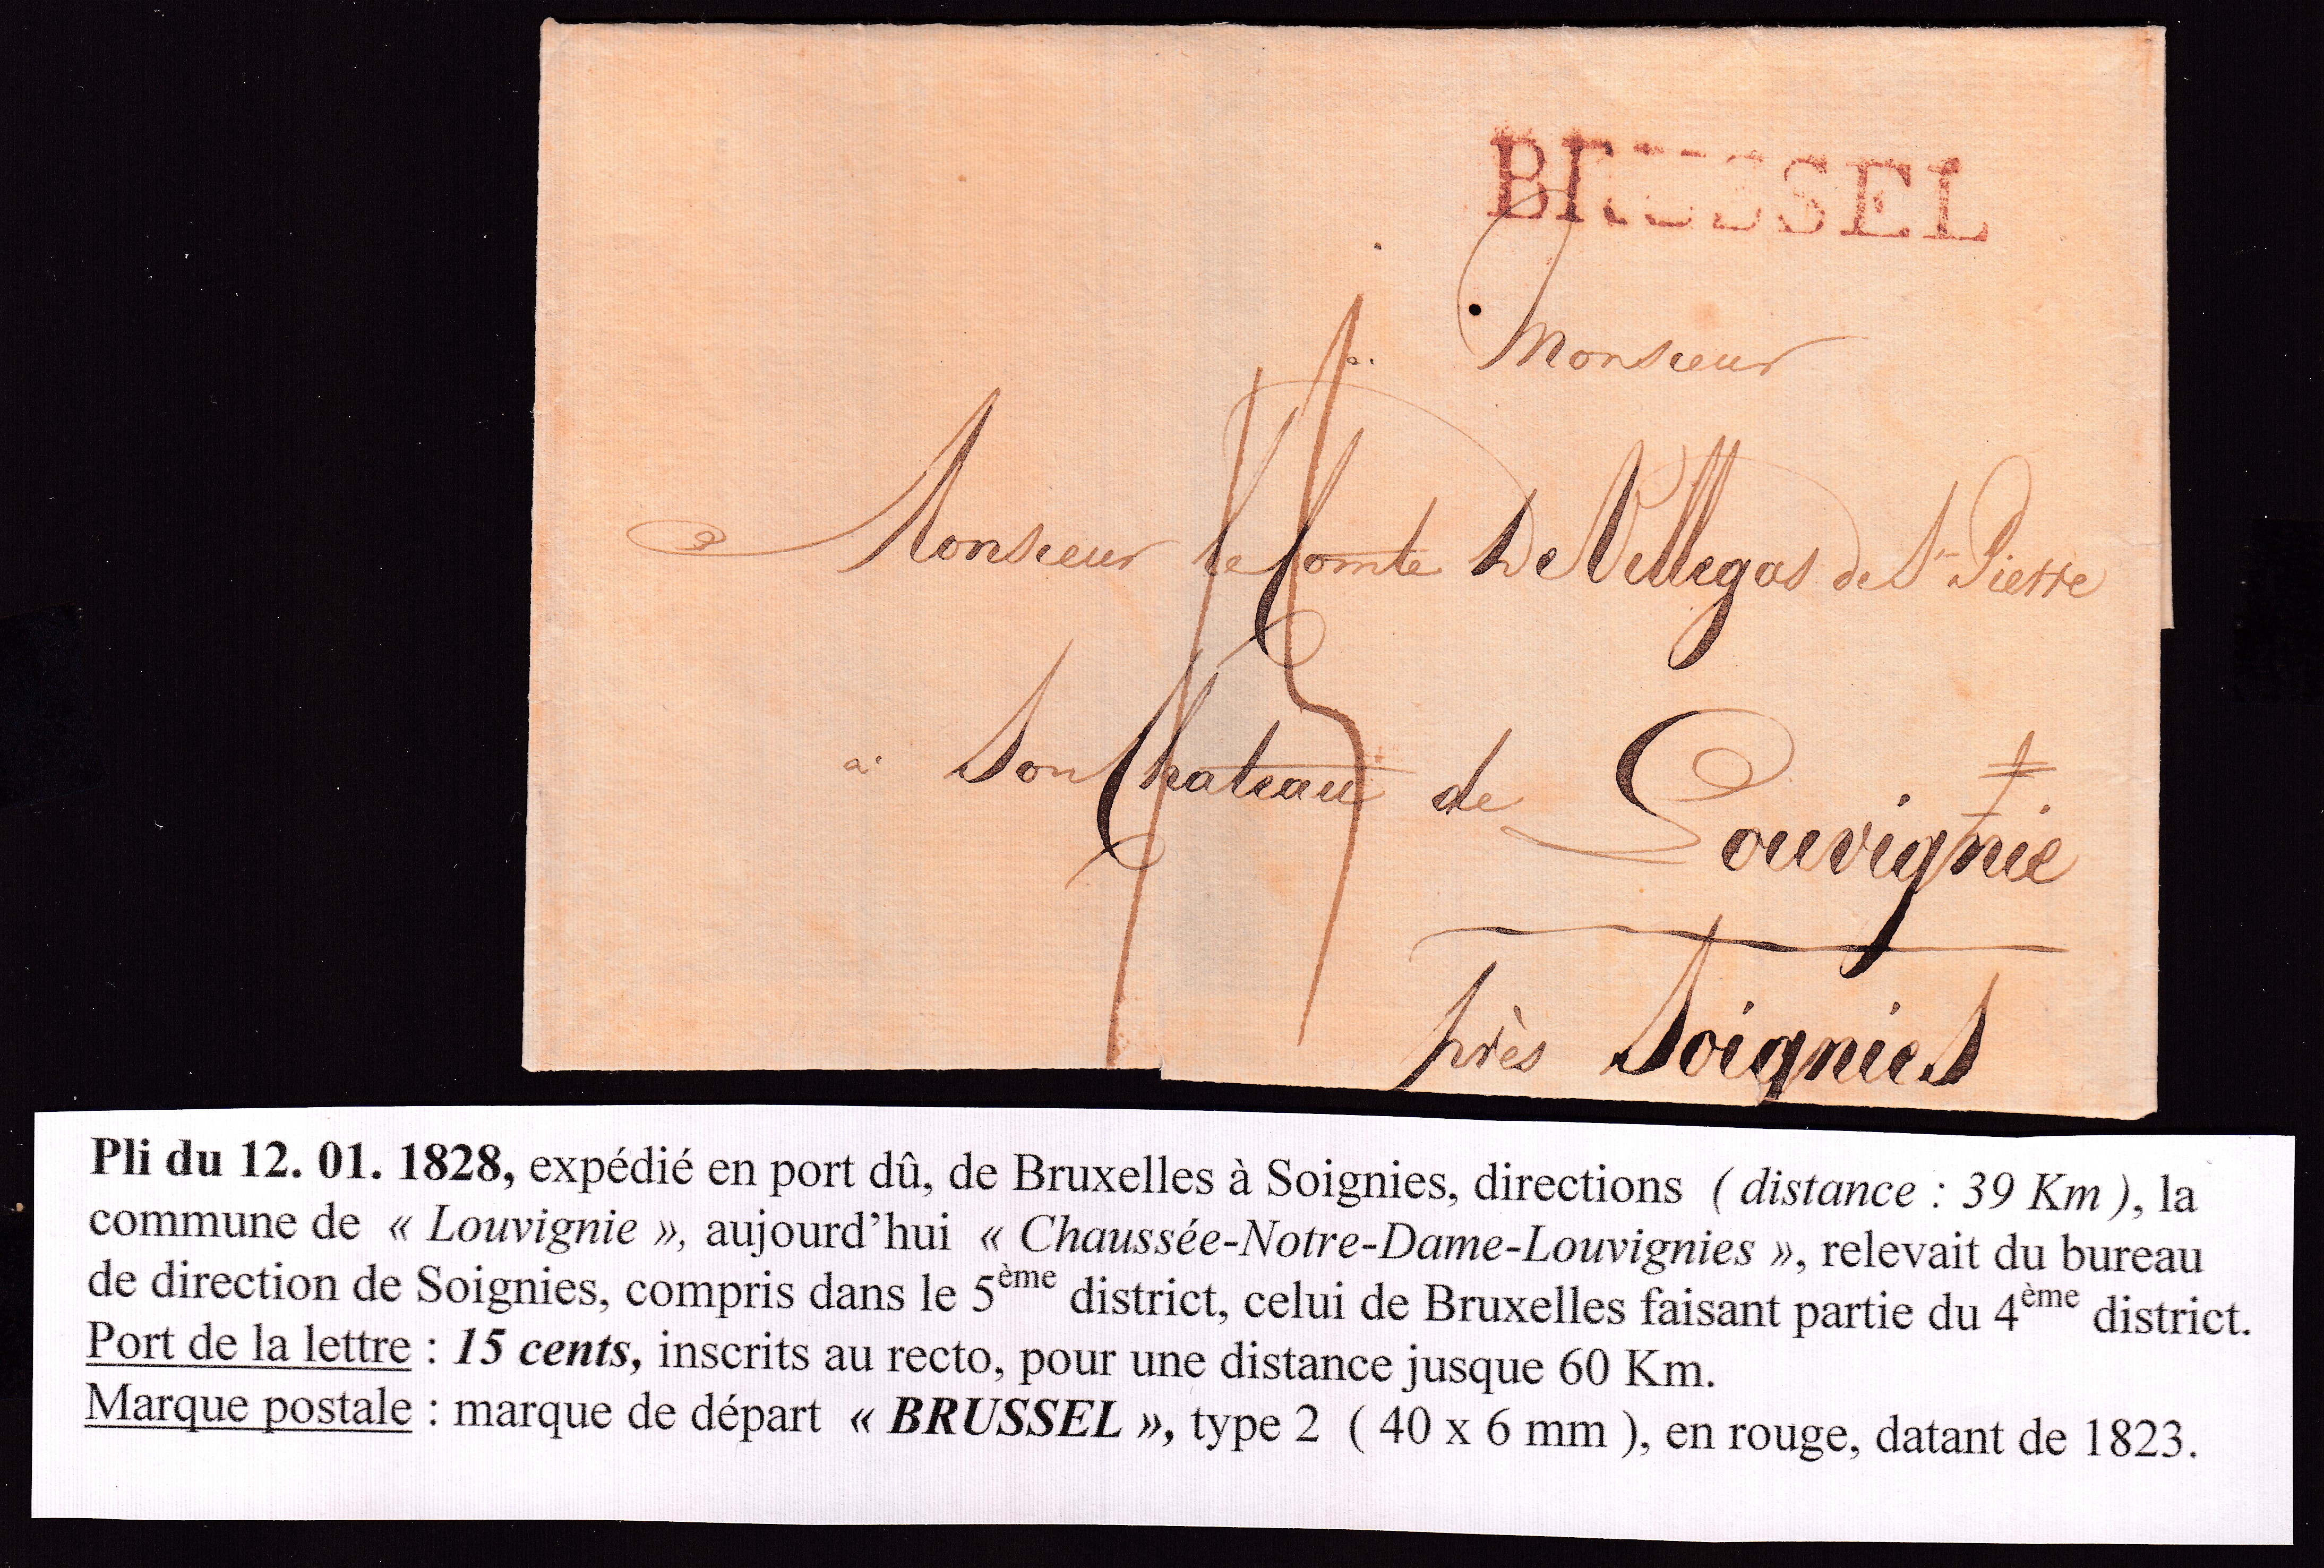 BRUSSEL
Monsieur
Monsieur le Comte De Villegas de St Pierre
a Son Chateau de Louvignie
près Soignies
15
Pli du 12. 01. 1828, expédié en port dû, de Bruxelles à Soignies, directions ( distance : 39 Km ), la
commune de « Louvignie », aujourd’hui « Chaussée-Notre-Dame-Louvignies », relevait du bureau
de direction de Soignies, compris dans le 5ème district, celui de Bruxelles faisant partie du 4ème district.
Port de la lettre : 15 cents, inscrits au recto, pour une distance jusque 60 Km.
Marque postale : marque de départ « BRUSSEL », type 2 ( 40 x 6 mm ), en rouge, datant de 1823.